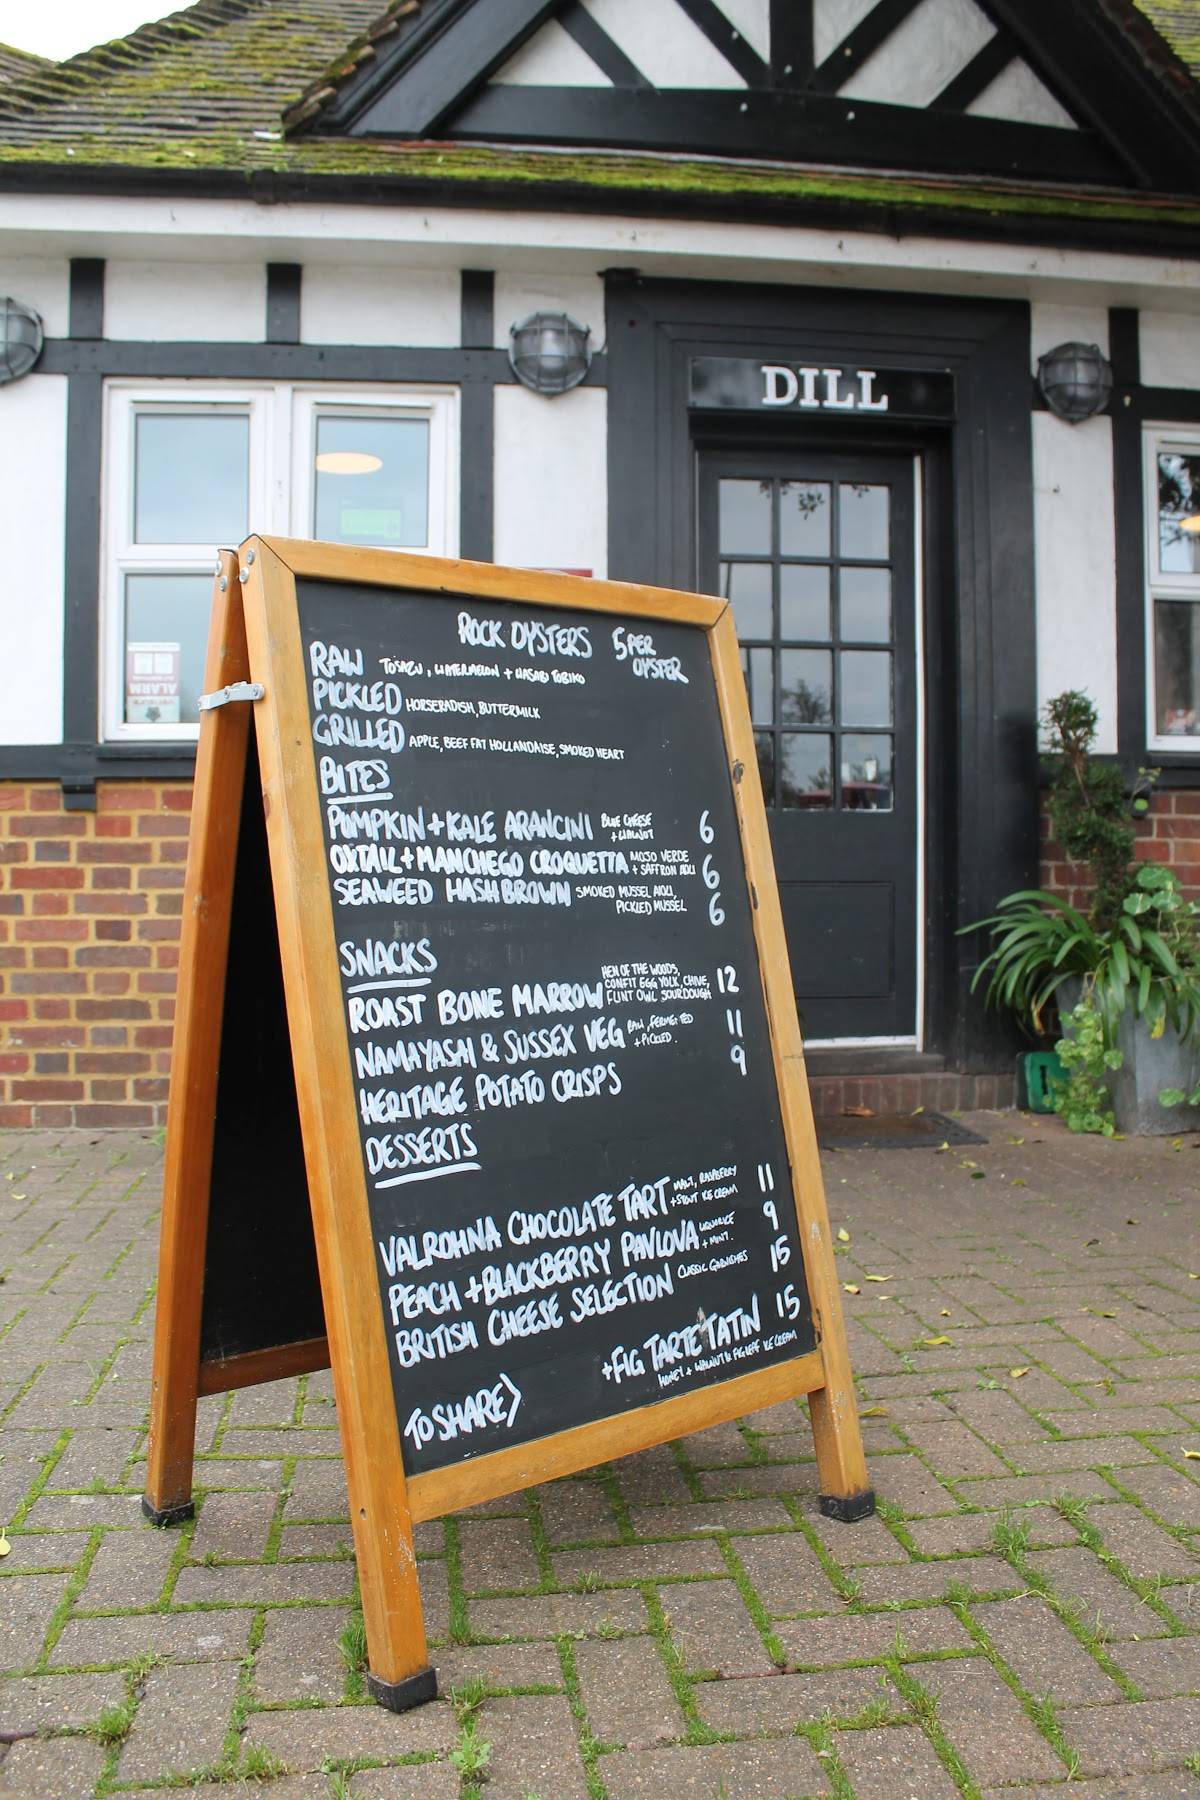 DILL
ALARM
ROCK OYSTERS 5 PER OYSTER
RAW TOSAZU, WATERMELON + WASABI TOBIKO
PICKLED HORSERADISH, BUTTERMILK
GRILLED APPLE, BEEF FAT HOLLANDAISE, SMOKED HEART
BITES
PUMPKIN + KALE ARANCINI BLUE CHEESE + WALNUT 6
OXTAIL + MANCHEGO CROQUETTA MOJO VERDE + SAFFRON AIOLI 6
SEAWEED HASHBROWN SMOKED MUSSEL AIOLI, PICKLED MUSSEL 6
SNACKS
ROAST BONE MARROW HEN OF THE WOODS, CONFIT EGG YOLK, CHIVE, FLINT OWL SOURDOUGH 12
NAMAYASAI & SUSSEX VEG RAW, FERMENTED + PICKLED. 11
HERITAGE POTATO CRISPS 9
DESSERTS
VALROHNA CHOCOLATE TART MALT, RASPBERRY + STOUT ICE CREAM 11
PEACH + BLACKBERRY PAVLOVA LIQUORICE + MINT. 9
BRITISH CHEESE SELECTION CLASSIC GARNISHES 15
TO SHARE) + FIG TARTE TATIN 15
HONEY + WALNUT & FIG LEAF ICE CREAM